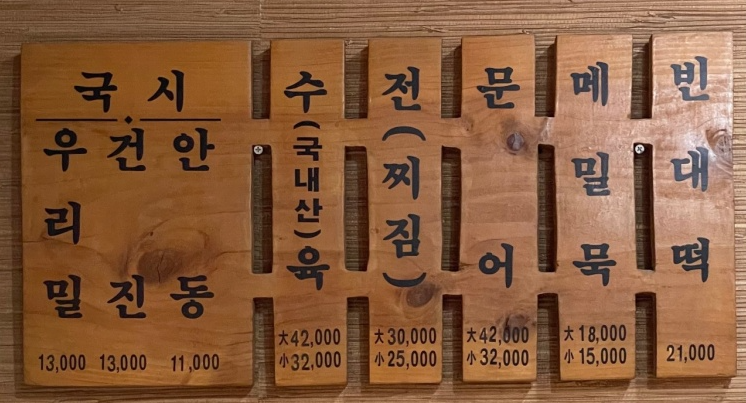 국시
우리밀 건진 안동
13,000 13,000 11,000
수(국내산)육
大42,000
小32,000
전(찌짐)
大30,000
小25,000
문어
大42,000
小32,000
메밀묵
大18,000
小15,000
빈대떡
21,000